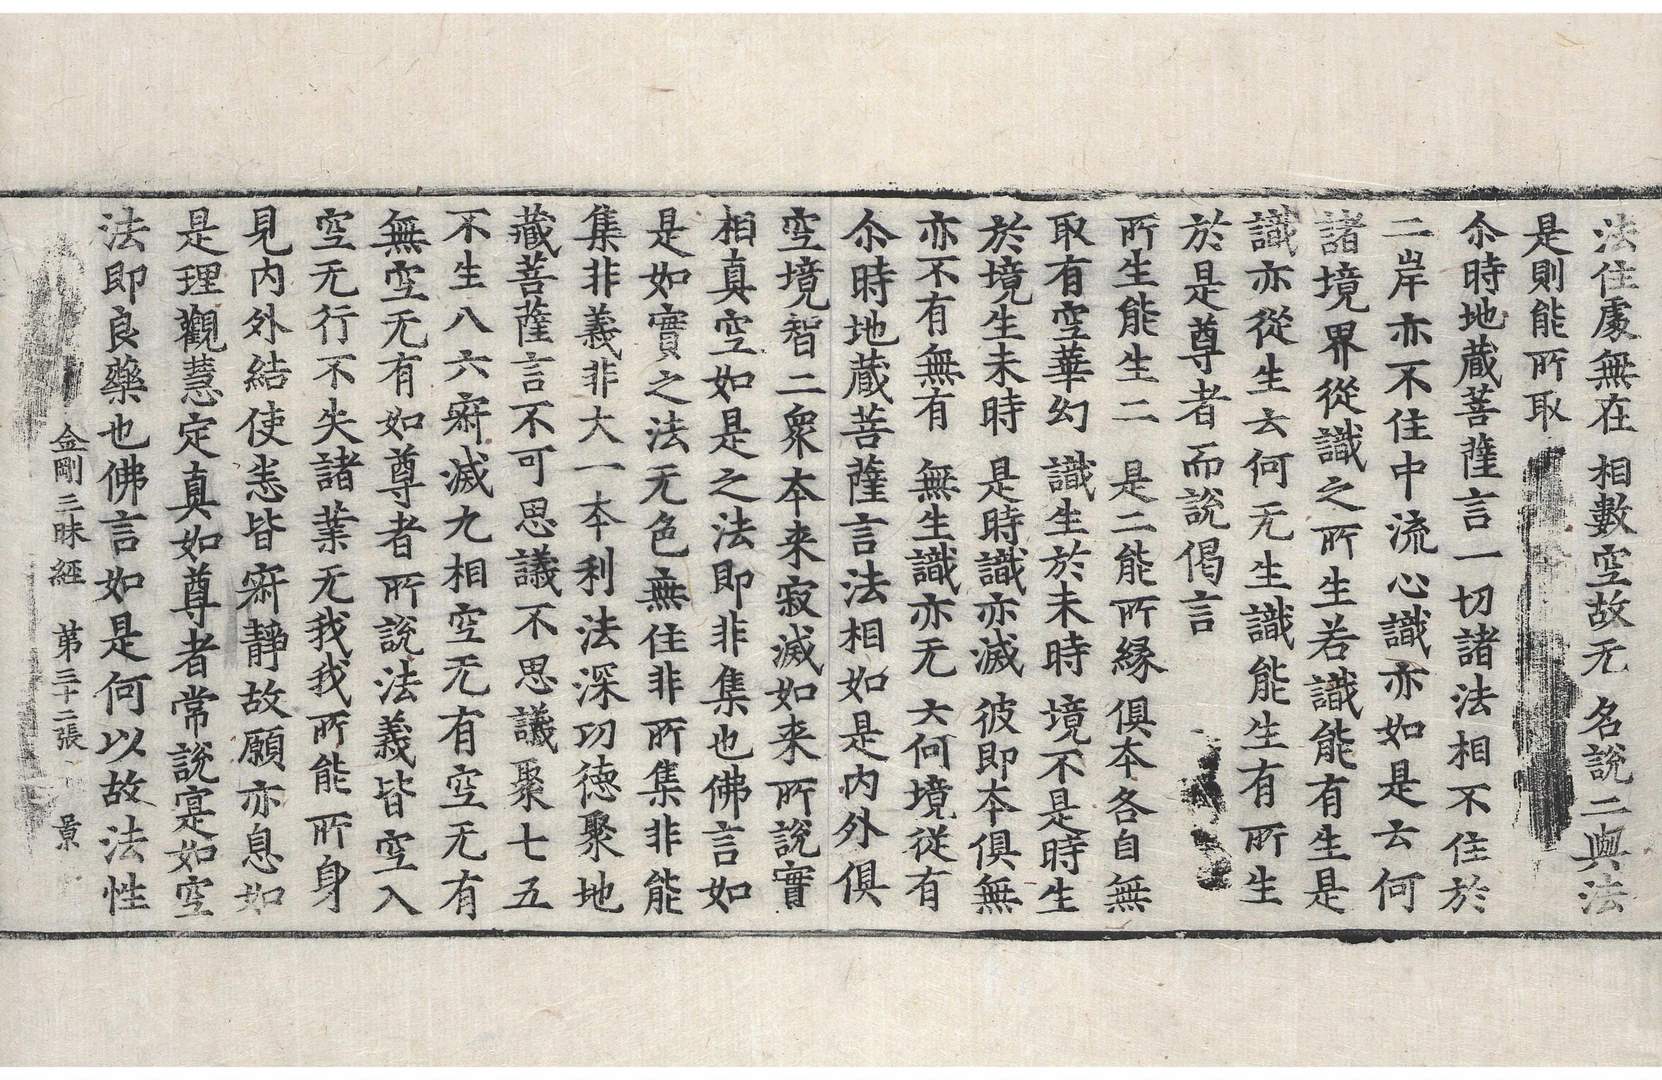 法住處無在 相數空故无 名說二與法
是則能所取
尒時地蔵菩薩言一切諸法相不住於
二岸亦不住中流心識亦如是云何
諸境界從識之所生若識能有生是
識亦從生云何无生識能生有所生
於是尊者而說偈言
所生能生二 是二能所緣 俱夲各自無
取有空華幻 識生於未時 境不是時生
於境生未時 是時識亦滅 彼即夲俱無
亦不有無有 無生識亦无 云何境從有
尒時地蔵菩薩言法相如是内外俱
空境智二衆夲来寂滅如来所說實
相真空如是之法即非集也佛言如
是如實之法无色無住非所集非能
集非義非大一夲利法深功德聚地
藏菩薩言不可思議不思議聚七五
不生八六㝛滅九相空无有空无有
無空无有如尊者所說法義皆空入
空无行不失諸業无我我所能所身
見内外結使悉皆㝛靜故願亦息如
是理觀慧定真如尊者常說寔如空
法即良藥也佛言如是何以故法性
金剛三昧經 第三十二張 景